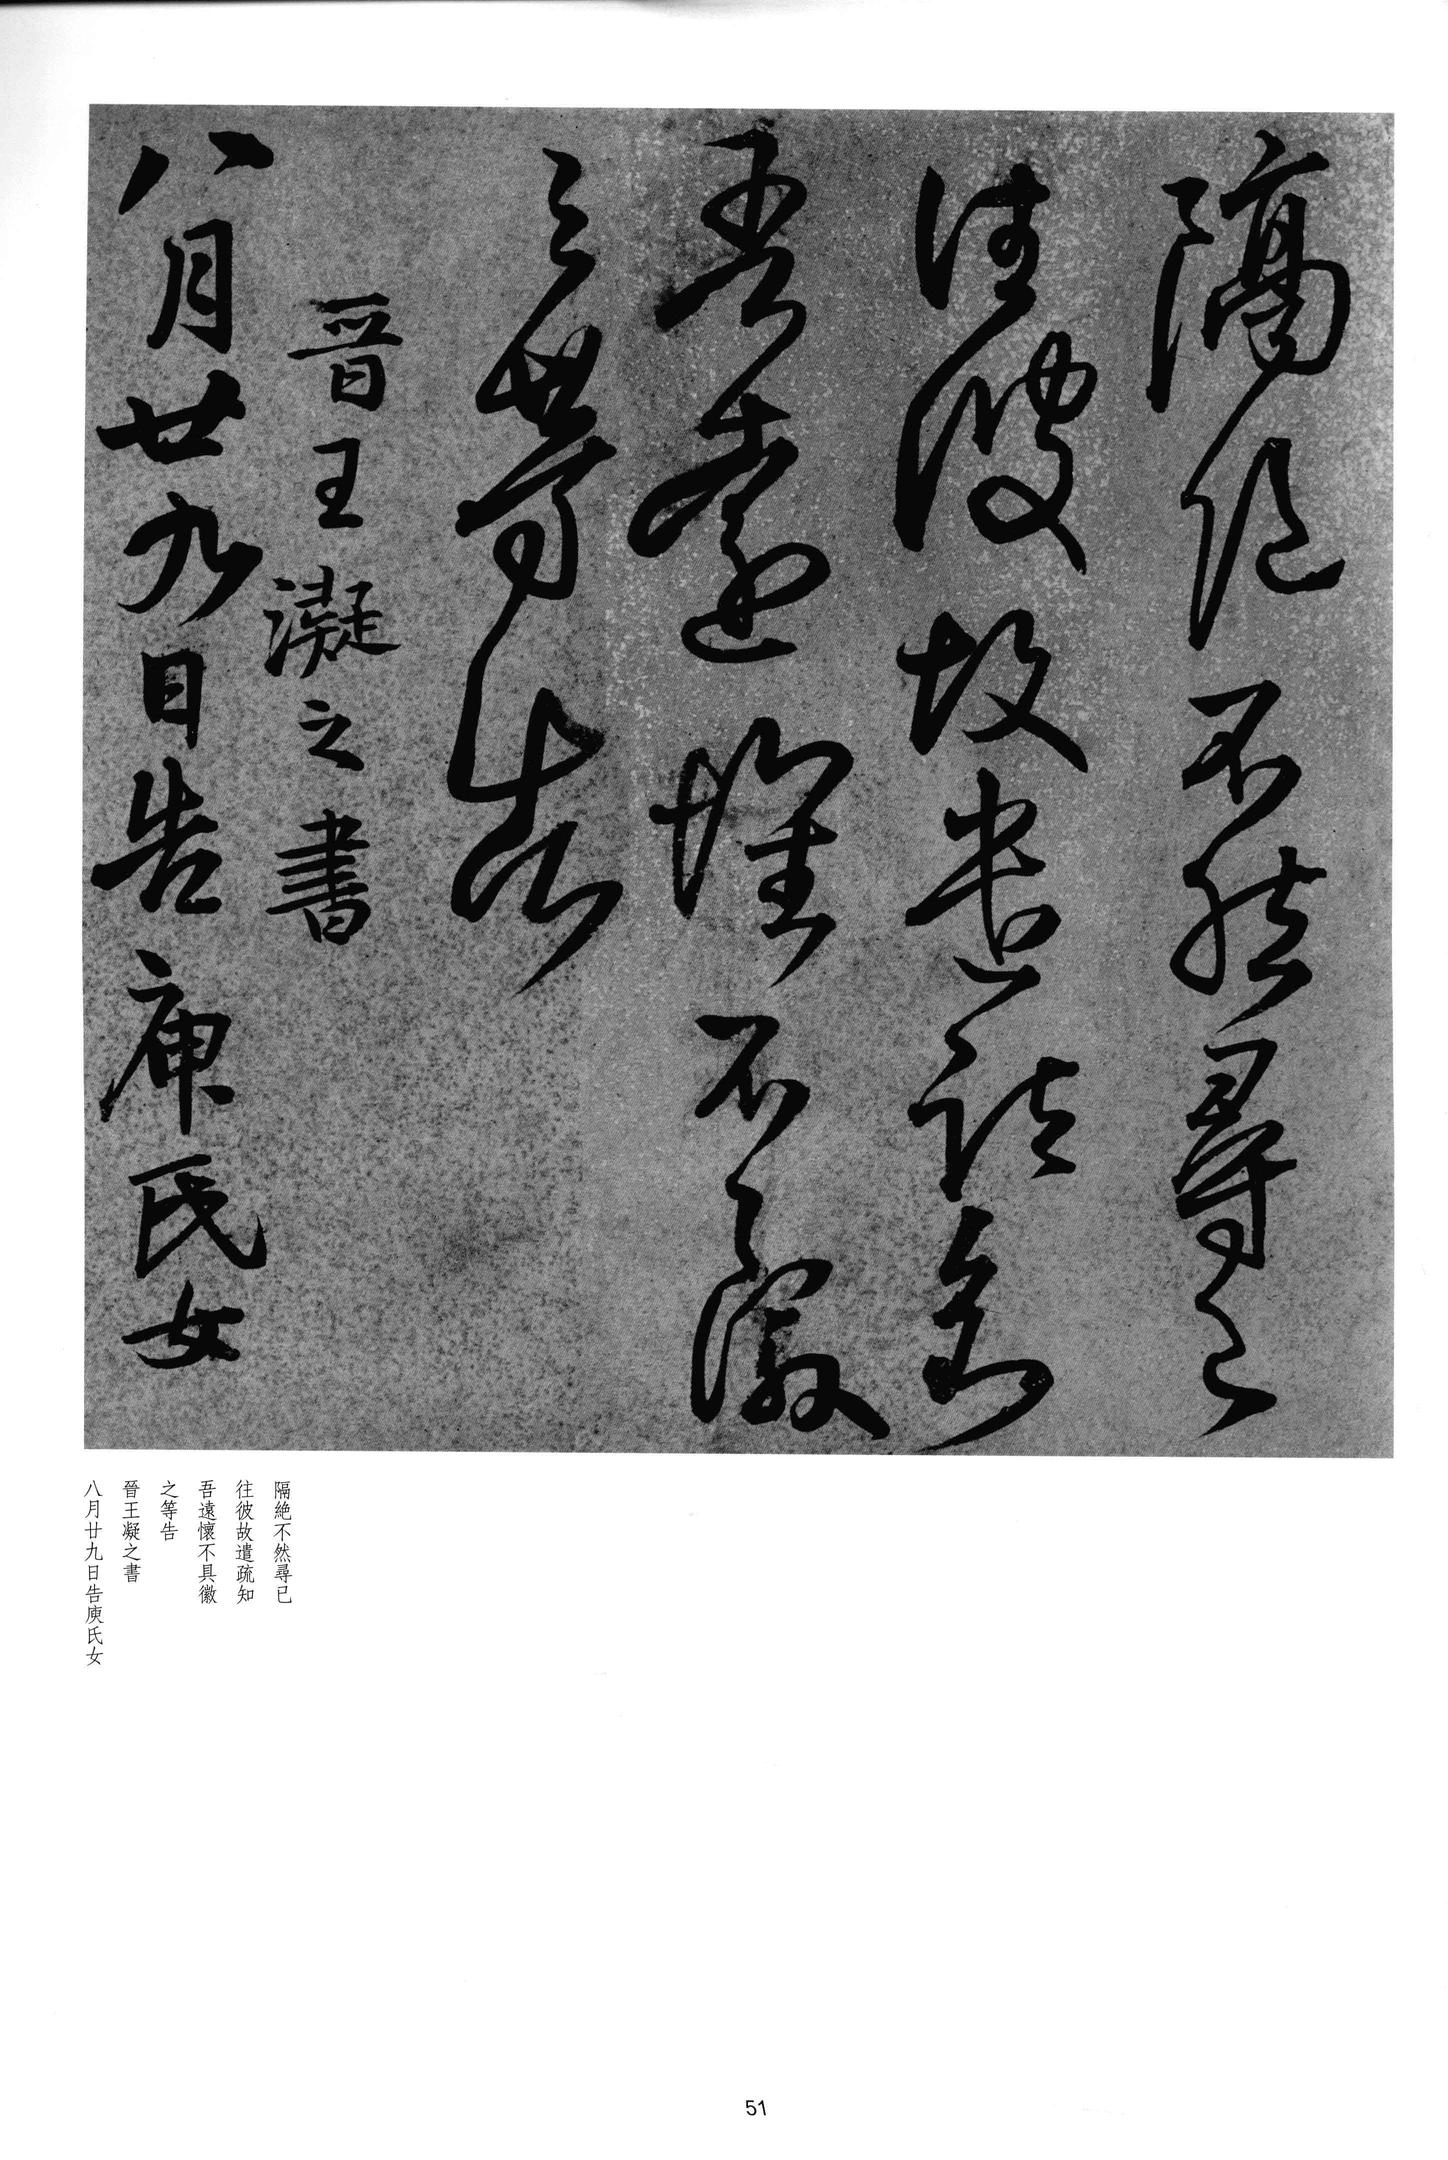 隔絶不然尋已
往彼故遣疏知
吾遠懷不具徽
之等告
晉王凝之書
八月廿九日告庾氏女
隔絶不然尋已
往彼故遣疏知
吾遠懷不具徽
之等告
晉王凝之書
八月廿九日告庾氏女
51